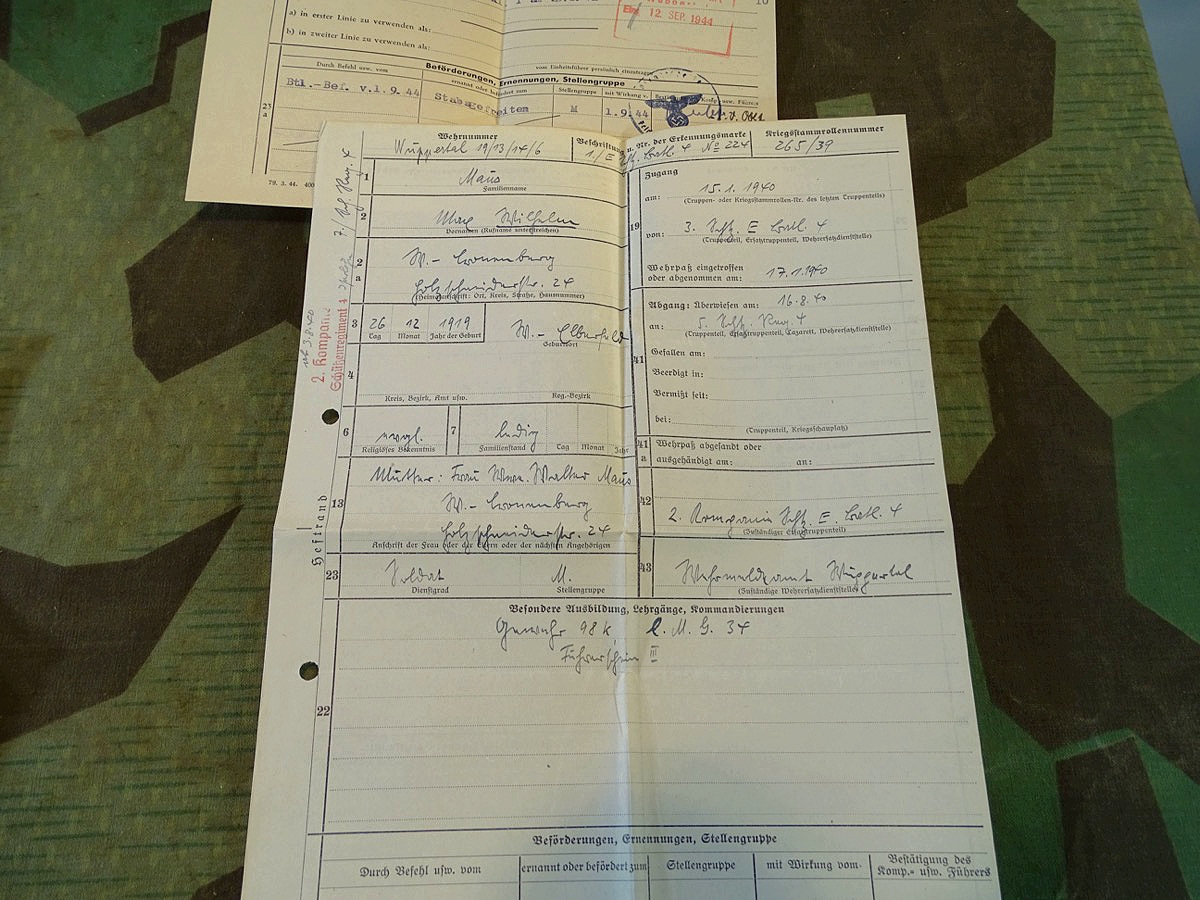 a) in erster Linie zu verwenden als:
b) in zweiter Linie zu verwenden als:
12 SEP. 1944
vom Einheitsführer persönlich einzutragen
Beförderungen, Ernennungen, Stellengruppe
Durch Befehl usw. vom
ernannt oder befördert zum
Stellengruppe
mit Wirkung v.
Btl.-Bef. v.1.9.44
Stabsgefreiten
M
1.9.44
23
a
79. 3. 44. 400
Wehrnummer
Wuppertal 19/13/14/6
Beschriftung u. Nr. der Erkennungsmarke
1./E Schtz. Batl. 4 No 224
Kriegsstammrollennummer
265/39
1
Maus
Familienname
2
Max Wilhelm
Vornamen (Rufname unterstreichen)
2
a
W.- Cronenberg
Holzschneiderstr. 24
(Heimatanschrift: Ort, Kreis, Straße, Hausnummer)
3
26 12 1919
Tag Monat Jahr der Geburt
W.- Elberfeld
Geburtsort
4
Kreis, Bezirk, Amt usw.
Reg.-Bezirk
6
evgl.
Religiöses Bekenntnis
7
ledig
Familienstand Tag Monat Jahr
13
Mutter: Frau Wwe. Walter Maus
W.- Cronenberg
Holzschneiderstr. 24
Anschrift der Frau oder der Eltern oder der nächsten Angehörigen
23
Soldat
Dienstgrad
M.
Stellengruppe
19
Zugang
am: 15.1. 1940
(Truppen- oder Kriegsstammrollen-Nr. des letzten Truppenteils)
von: 3. Schtz. E. Batl. 4
(Truppenteil, Ersatztruppenteil, Wehrersatzdienststelle)
Wehrpaß eingetroffen
oder abgenommen am: 17.1.1940
41
Abgang: Überwiesen am: 16.8.40
an: 5. Schtz. Rgt. 4
(Truppenteil, Ersatztruppenteil, Lazarett, Wehrersatzdienststelle)
Gefallen am:
Beerdigt in:
Vermißt seit:
bei:
(Truppenteil, Kriegsschauplatz)
41
a
Wehrpaß abgesandt oder
ausgehändigt am: an:
42
2. Kompanie Schtz. E. Batl. 4
(Zuständiger Ersatztruppenteil)
43
Wehrmeldeamt Wuppertal
(Zuständige Wehrersatzdienststelle)
Heftrand
2. Kompanie
Schützenregiment 4
22
Besondere Ausbildung, Lehrgänge, Kommandierungen
Gewehr 98k, l. M. G. 34
Führerschein III
Beförderungen, Ernennungen, Stellengruppe
Durch Befehl usw. vom
ernannt oder befördert zum
Stellengruppe
mit Wirkung vom
Bestätigung des
Komp.- usw. Führers